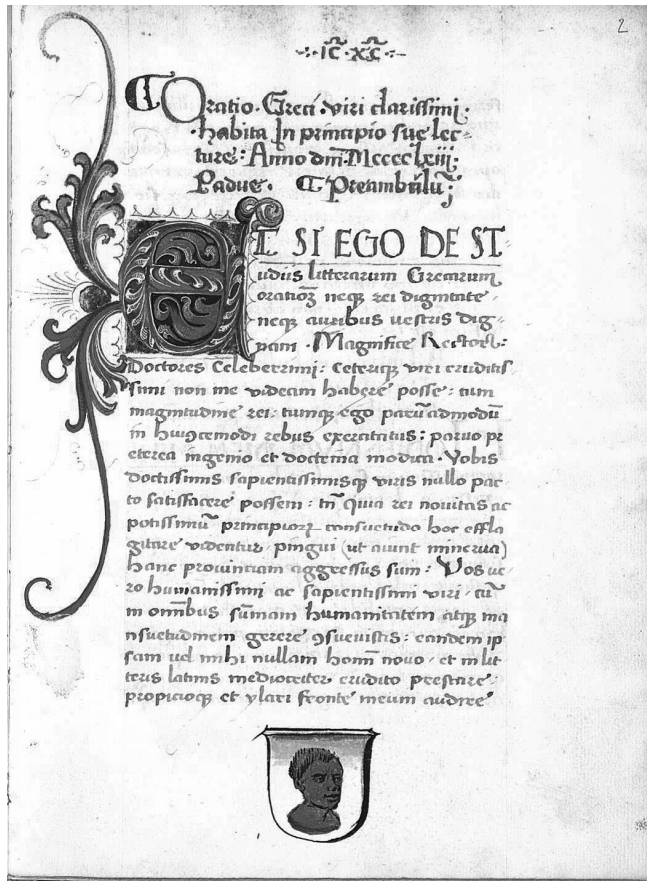 2
·:· IC̃ · XC̃ ·:·
Oratio · Greci · viri clarissimi ·
· habita In principio sue lec-
ture : Anno dñi · Mcccclxiii :
Padue · ¶ Preambulũ ;
ET SI EGO DE ST
udiis litterarum Grecarum
orationẽ neqꝫ rei dignitate
neqꝫ auribus vestris dig-
nam · Magnifice Rector :
Doctores Celeberrimi : Ceteriqꝫ viri eruditis
simi non me videam habere posse : tum
magnitudine rei : tumqꝫ ego parũ admodũ
in huiꝯcemodi rebus exercitatus : paruo pr
eterea ingenio et doctrina modica · Vobis
doctissimis sapientissimisqꝫ viris nullo pac
to satisfacere possem : tñ quia rei novitas ac
potissimũ principioꝝ consuetudo hoc effla
gitare videntur · pingui (ut aiunt minerva)
hanc provinciam aggressus sum : Vos ve
ro humanissimi ac sapientissimi viri · cũ
in omñibus sũmam humanitatem atqꝫ ma
nsuetudinem gerere ꝯsuevistis : eandem ip
sam vel mihi nullam homĩ novo · et in lit
teris latinis mediocriter erudito prestare ·
propicioqꝫ et ylari fronte meum audire